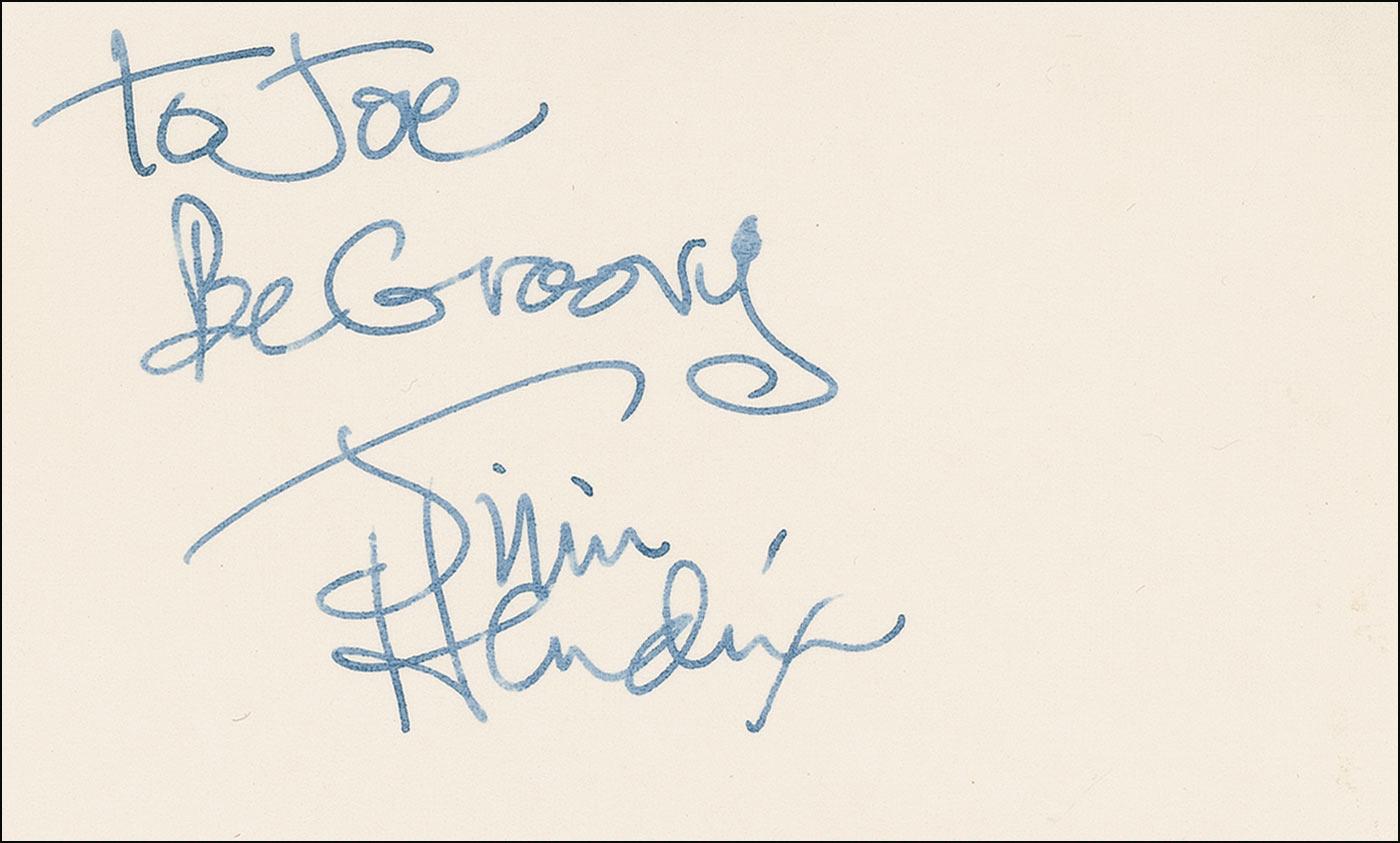 to Joe
Be Groovy
Jimi
Hendrix